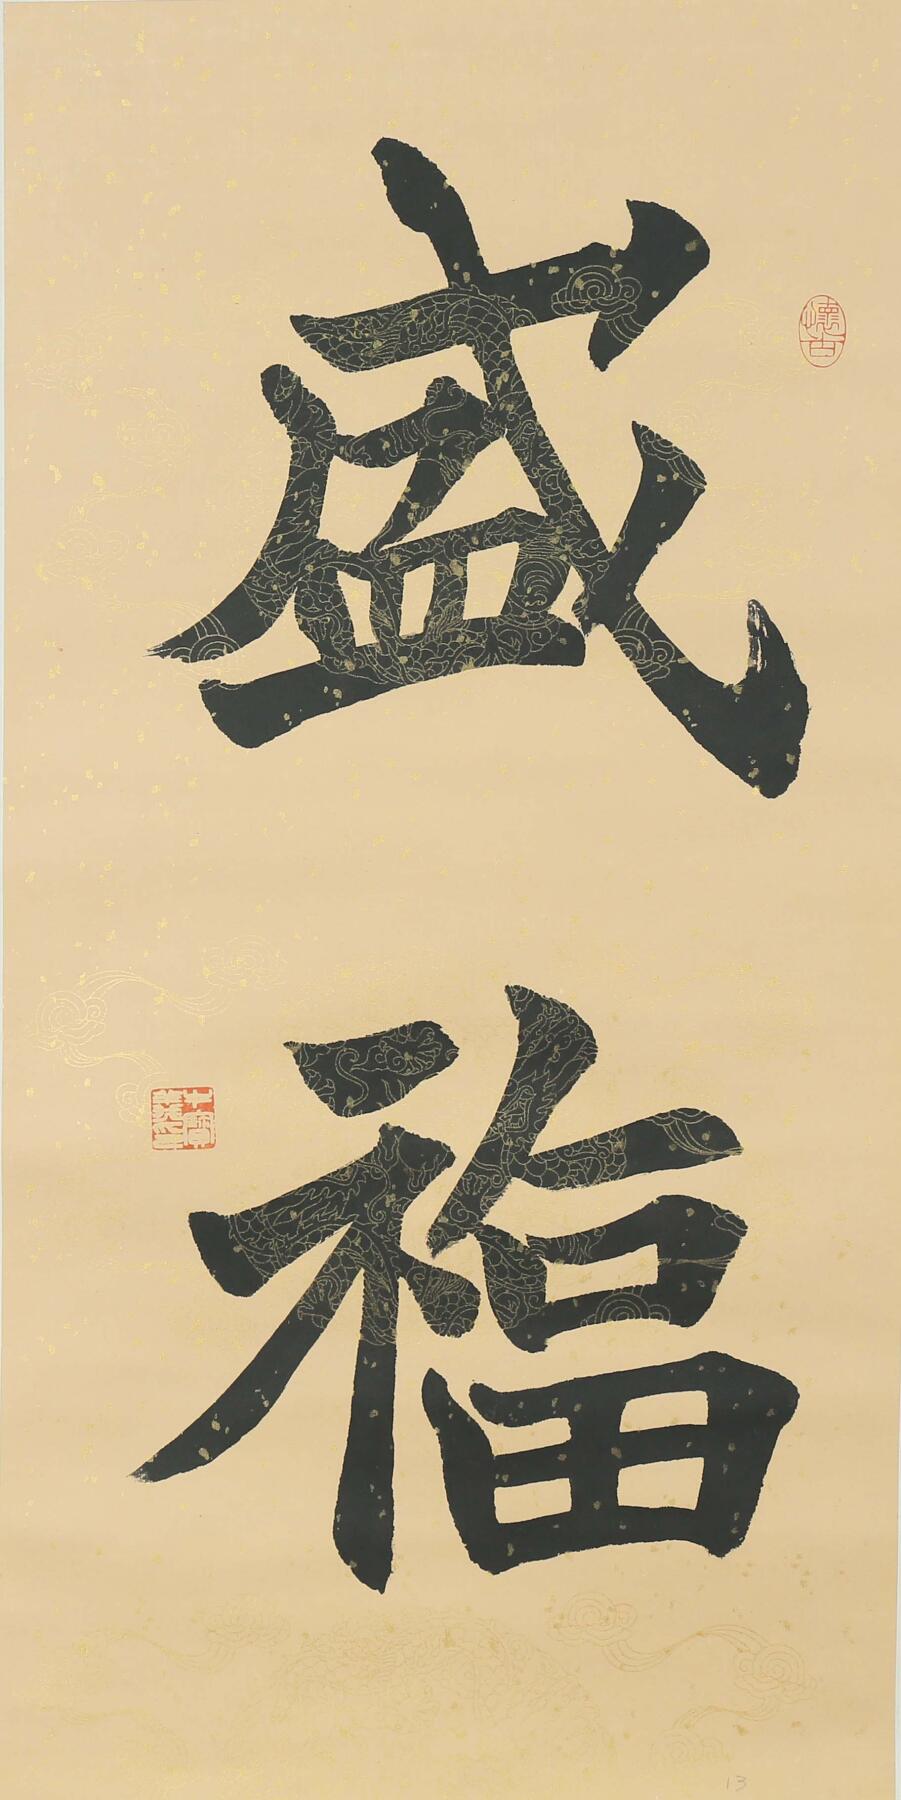 盛
福
懷古
13